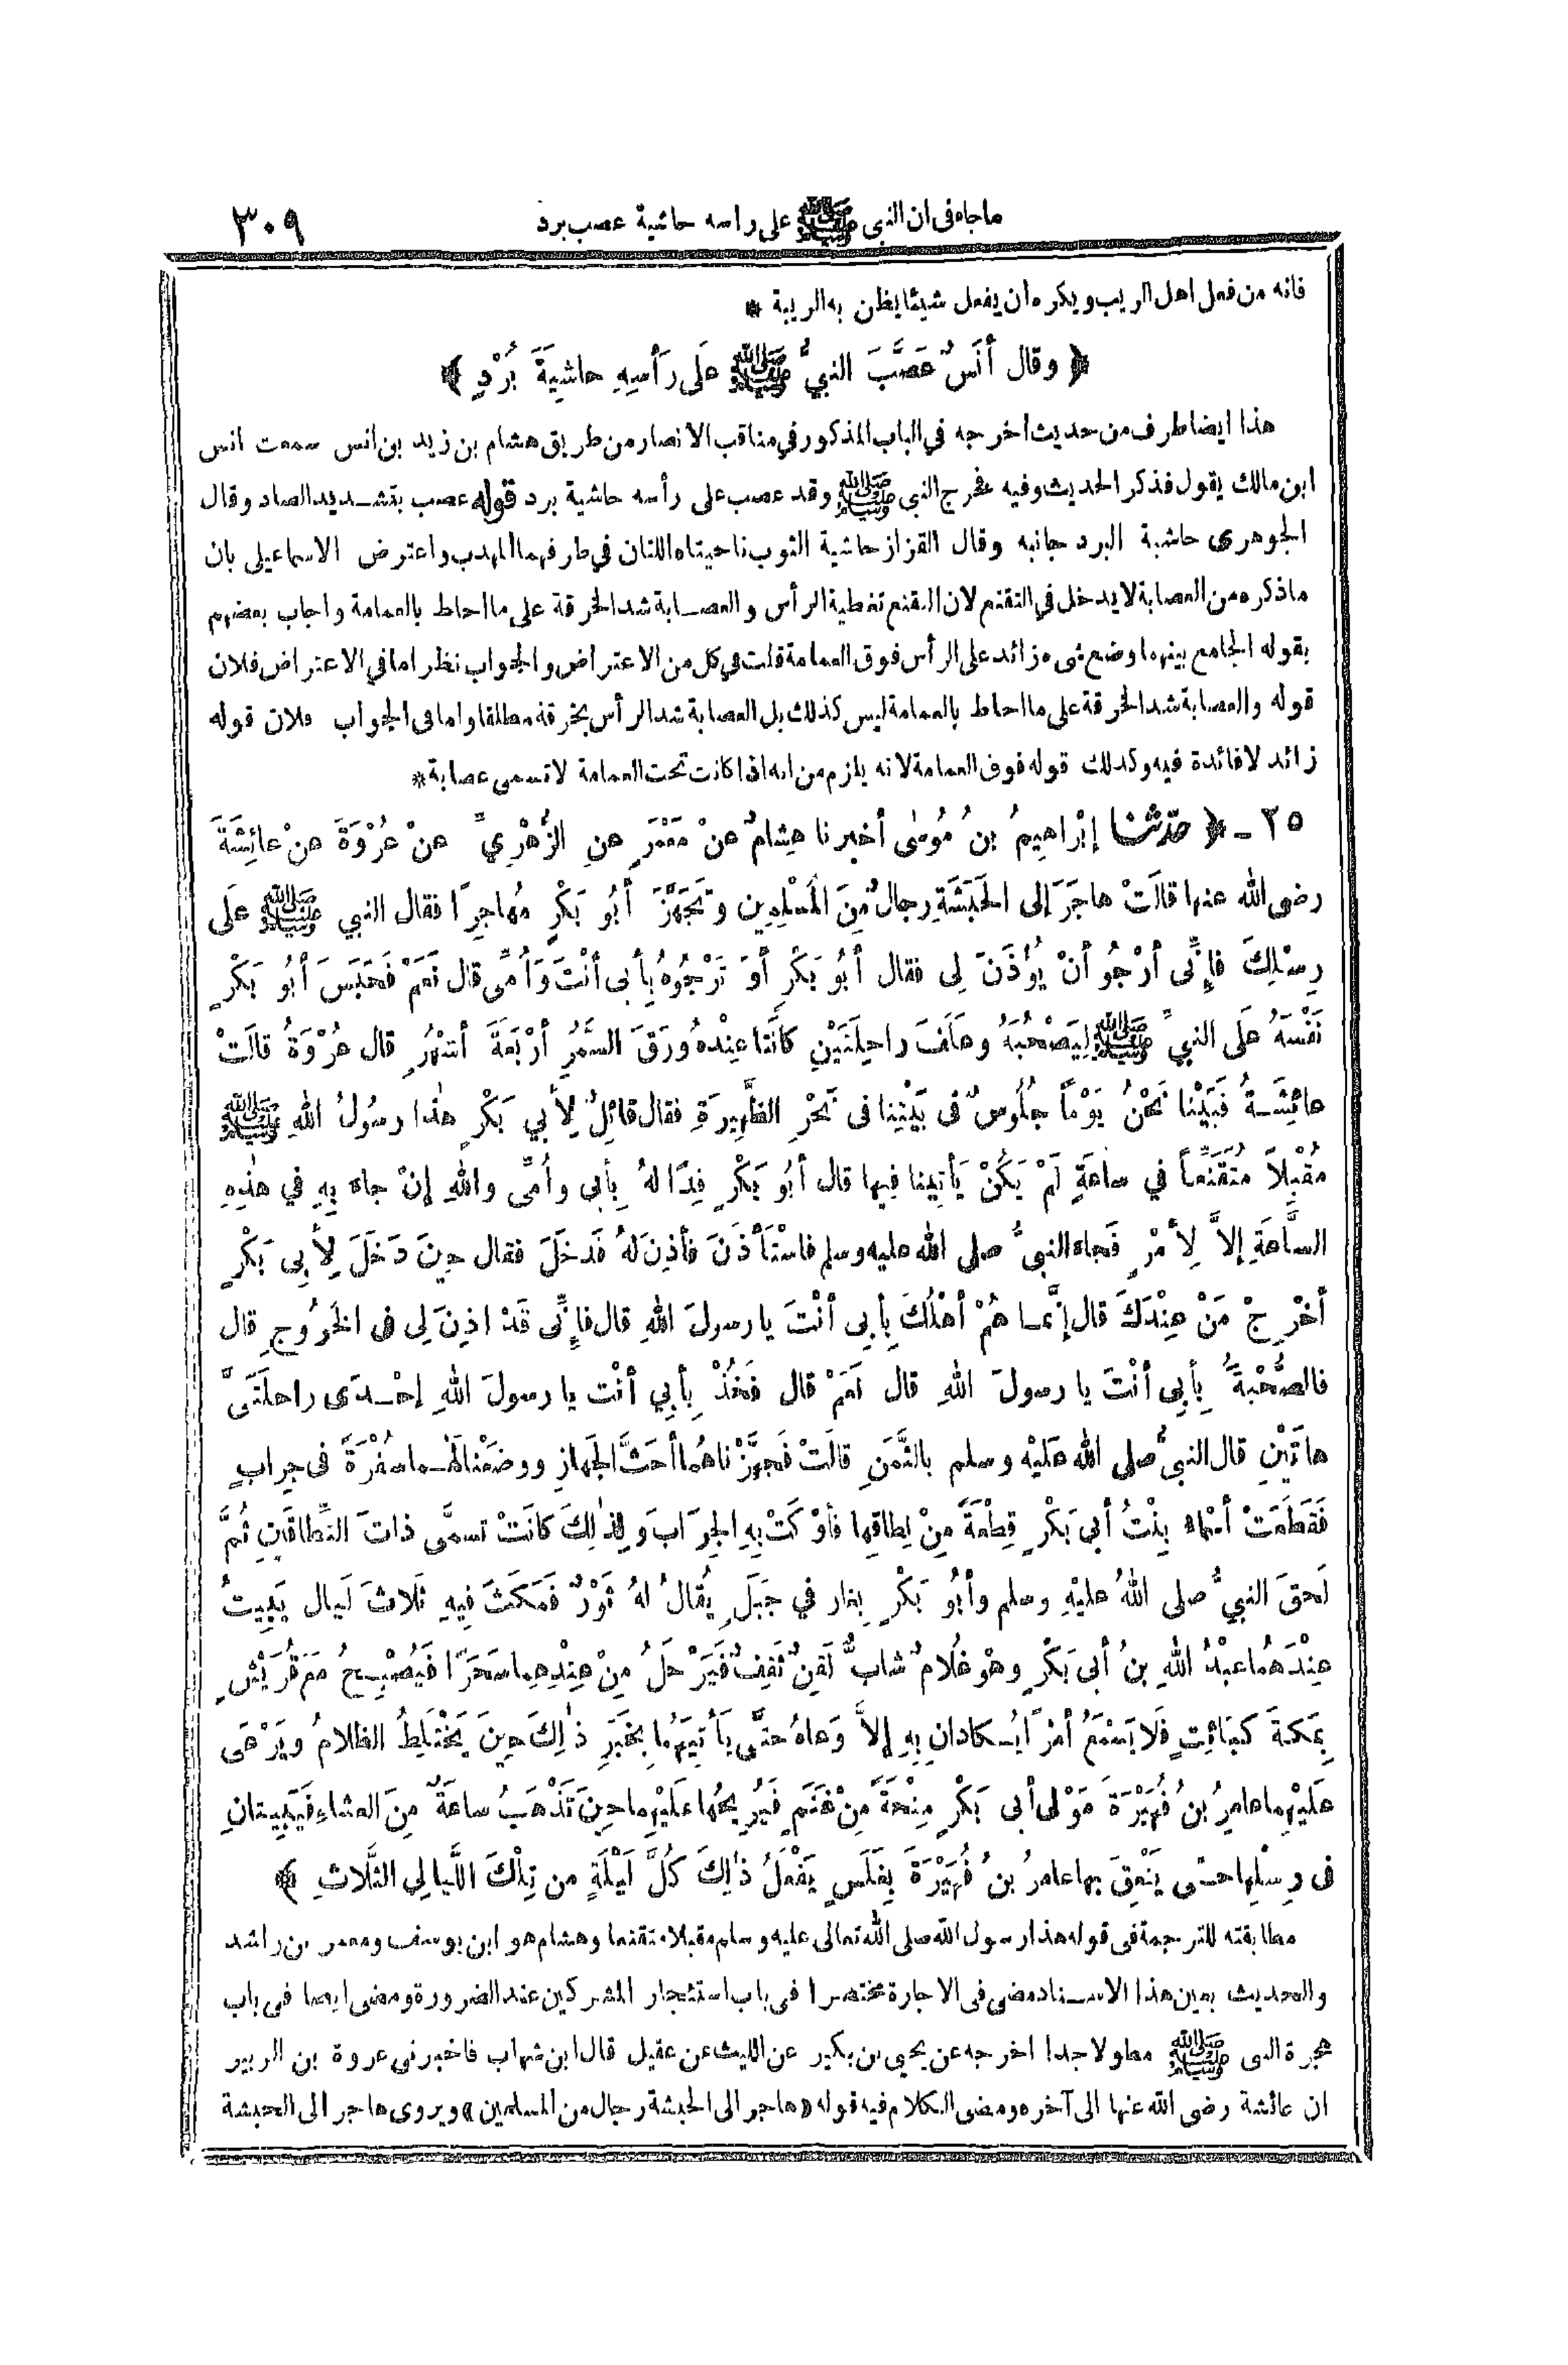 ماجاء فى ان النبى ﷺ على راسه حاشية عصب برد ٣٠٩
فانه من فعل اهل الريب ويكره ان يفعل شيئا يظن به الريبة *
﴿ وقال أَنَسٌ عَصَّبَ النبيُّ ﷺ عَلَى رَأْسِهِ حاشِيَةَ بُرْدٍ ﴾
هذا ايضا طرف من حديث اخرجه في الباب المذكور في مناقب الانصار من طريق هشام بن زيد بن انس سمعت انس
ابن مالك يقول فذكر الحديث وفيه فخرج النبي ﷺ وقد عصب على رأسه حاشية برد قوله عصب بتشديد الصاد وقال
الجوهرى حاشية البرد جانبه وقال القزاز حاشية الثوب ناحيتاه اللتان في طرفهما المهدب واعترض الاسماعيلى بان
ماذكره من العصابة لا يدخل في التقنع لان التقنع تغطية الرأس والعصابة شد الخرقة على ما احاط بالعمامة واجاب بعضهم
بقوله الجامع بينهما وضع شىء زائد على الرأس فوق العمامة قلت في كل من الاعتراض والجواب نظر اما في الاعتراض فلان
قوله والعصابة شد الخرقة على ما احاط بالعمامة ليس كذلك بل العصابة شد الرأس بخرقة مطلقا واما فى الجواب فلان قوله
زائد لا فائدة فيه وكذلك قوله فوق العمامة لانه يلزم من انه اذا كانت تحت العمامة لا تسمى عصابة *
٢٥ - ﴿ حدّثنا إبْراهِيمُ بنُ مُوسٰى أخبرنا هِشامٌ عنْ مَعْمَرٍ عنِ الزُّهْرِيِّ عنْ عُرْوَةَ عنْ عائِشَةَ
رضى الله عنها قالَتْ هاجَرَ إلى الحَبَشَةِ رجالٌ مِنَ المُسْلِمِين وتَجَهَّزَ أبُو بَكْرٍ مُهاجِرًا فقال النبي ﷺ عَلَى
رِسْلِكَ فإِنِّى أرْجُو أنْ يُؤْذَنَ لِى فقال أبُو بَكْرٍ أوَ تَرْجُوهُ بِأبى أنْتَ وَأُمِّى قال نَعَمْ فَحَبَسَ أبُو بَكْرٍ
نَفْسَهُ عَلَى النبيِّ ﷺ لِيَصْحُبَهُ وعَلَفَ راحِلَتَيْنِ كانَتا عِنْدهُ ورَقَ السَّمُرِ أرْبَعَةَ أشْهُرٍ قال عُرْوَةُ قالَتْ
عائِشَةُ فَبَيْنا نَحْنُ يَوْماً جُلُوسٌ فى بَيْتِنا فى نَحْرِ الظَّهِيرَةِ فقال قائِلٌ لِأبي بَكْرٍ هٰذا رسُولُ اللهِ ﷺ
مُقْبِلاً مُتَقَنِّعاً في ساعَةٍ لَمْ يَكُنْ يَأتِينا فِيها قال أبُو بَكْرٍ فِدًا لهُ بِأبى وأُمِّى واللهِ إنْ جاء بِهِ في هٰذِهِ
السَّاعَةِ إلاَّ لِأمْرٍ فَجاء النبىُّ صلى الله عليه وسلم فاسْتَأْذَنَ فأذِنَ لهُ فَدَخَلَ فقال حِينَ دَخَلَ لِأبِى بَكْرٍ
أخْرِجْ مَنْ عِنْدَكَ قال إنَّما هُمْ أهْلُكَ بِأبِى أنْتَ يا رسولَ اللهِ قال فإِنِّى قَدْ اذِنَ لِى فى الخُرُوجِ قال
فالصُّحْبَةَ بِأبِى أنْتَ يا رسولَ اللهِ قال نَعَمْ قال فَخُذْ بِأبِي أنْت يا رسولَ اللهِ إحْدَى راحلَتَىَّ
هاتَيْنِ قال النبىُّ صلى الله عَلَيْه وسلم بالثَّمَنِ قالَتْ فَجَهَّزْناهُما أحَثَّ الجَهازِ ووضَعْنا لَهُما سُفْرَةً فى جِرابٍ
فَقَطَعَتْ أسْماء بِنْتُ أبى بَكْرٍ قِطْعَةً مِنْ نِطاقِها فأوْ كَتْ بِهِ الجِرَابَ ولِذٰلِكَ كانَتْ تسمَّى ذاتَ النِّطاقَيْنِ ثُمَّ
لَحِقَ النبيُّ صلى اللهُ عليْهِ وسلم وأبُو بَكْرٍ بِغار في جَبَلٍ يُقالُ لهُ ثَوْرٌ فَمَكَثَ فِيهِ ثَلاثَ لَيال يَبِيتُ
عِنْدَهُما عبْدُ اللهِ بنُ أبى بَكْرٍ وهْو غُلامٌ شابٌّ لَقِنٌ ثَقِفٌ فَيَرْحَلُ مِنْ عِنْدِهِما سَحَرًا فَيُصْبِحُ مَعَ قُرَيْشٍ
بِمَكةَ كَبَائِتٍ فَلا يَسْمَعُ أمْرًا يُكادانِ بِهِ إلاَّ وَعاهُ حتَّى يَأْتِيَهُما بِخَبَرِ ذٰلِكَ حِينَ يَخْتَلِطُ الظلامُ ويَرْعَى
عَلَيْهِما عامِرُ بنُ فُهَيْرَةَ مَوْلى أبى بَكْرٍ مِنْحَةً مِنْ غَنَمٍ فَيُرِيحُها عَلَيْهِما حِينَ تَذْهَبُ ساعَةٌ مِنَ العشاءِ فَيَبِيتانِ
فى رِسْلِها حتى يَنْعِقَ بها عامرُ بنُ فُهَيْرَةَ بِغَلَسٍ يَفْعَلُ ذٰلِكَ كُلَّ لَيْلَةٍ من تِلْكَ اللَّيالِي الثَّلاثِ ﴾
مطابقته للترجمة فى قوله هذا رسول الله صلى الله تعالى عليه وسلم مقبلا متقنعا وهشام هو ابن يوسف ومعمر بن راشد
والحديث بعين هذا الاسناد مضى فى الاجارة مختصرا فى باب استئجار المشركين عند الضرورة ومضى ايضا فى باب
هجرة النبى ﷺ مطولا جدا اخرجه عن يحيى بن بكير عن الليث عن عقيل قال ابن شهاب فاخبرنى عروة بن الزبير
ان عائشة رضى الله عنها الى آخره ومضى الكلام فيه قوله «هاجر الى الحبشة رجال من المسلمين» ويروى هاجر الى الحبشة